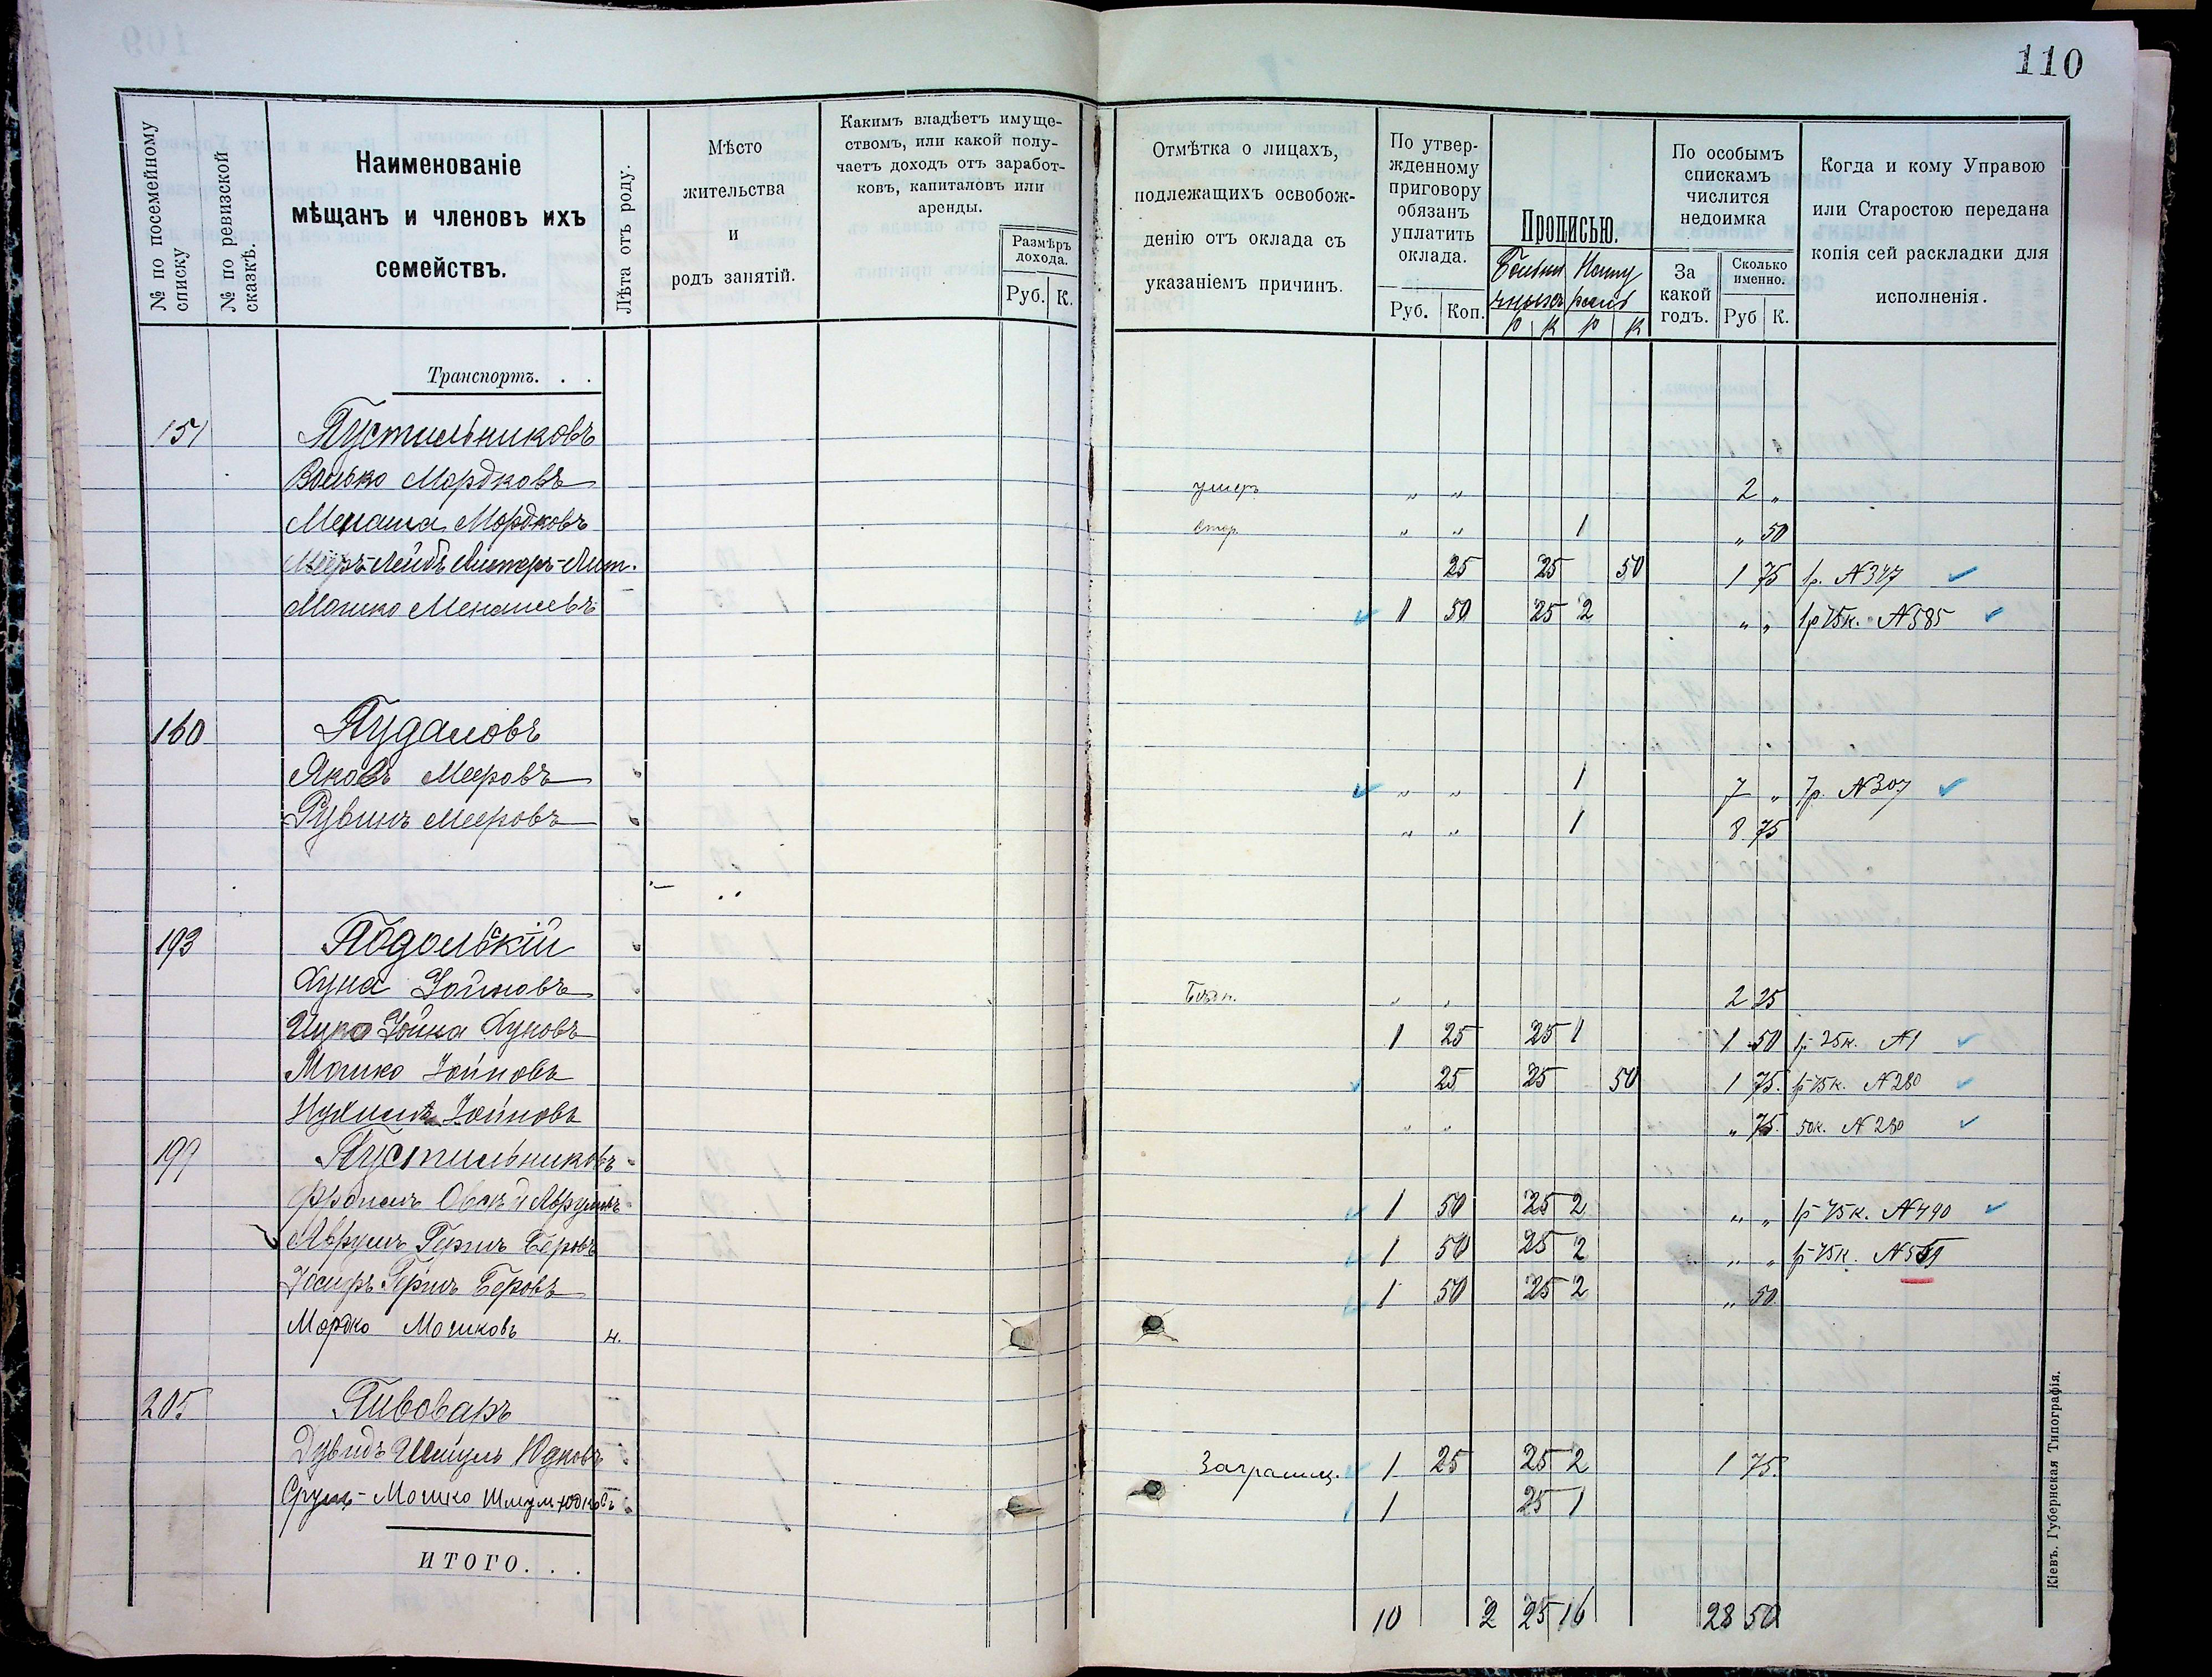 110
№ по посемейному списку
№ по ревизской сказкѣ.
Наименованіе
мѣщанъ и членовъ ихъ
семействъ.
Лѣта отъ роду.
Мѣсто
жительства
и
родъ занятій.
Какимъ владѣетъ имуще-
ствомъ, или какой полу-
чаетъ доходъ отъ заработ-
ковъ, капиталовъ или
аренды.
Размѣръ
дохода.
Руб. К.
Отмѣтка о лицахъ,
подлежащихъ освобож-
денію отъ оклада съ
указаніемъ причинъ.
По утвер-
жденному
приговору
обязанъ
уплатить
оклада.
Руб. Коп.
Прописью.
р к р к
По особымъ
спискамъ
числится
недоимка
За
какой
годъ.
Сколько
именно.
Руб К.
Когда и кому Управою
или Старостою передана
копія сей раскладки для
исполненія.
Транспортъ. . .
151 Пустильниковъ
Волько Мордковъ умеръ „ „ 2 „
Менаша Мордковъ „ „ 1 „ 50
Мееръ-Лейбъ 25 25 50 1 75 1р. №347
Мошко Менашевъ 1 50 25 2 „ „ 1р 75к. №585
160 Пудаловъ
Яковъ Мееровъ „ „ 1 7 „ 7р. №307
Рувинъ Мееровъ „ „ 1 8 75
193 Подольскій
Хуна Іойновъ „ „ 2 25
Іойна Хуновъ 1 25 25 1 1 50 1р 25к. №1
Мошко Іойновъ 25 25 50 1 75. 1р 75к. №280
Нухимъ Іойновъ „ „ „ 75. 50к. №280
199 Пустильниковъ
Фроимъ 1 50 25 2 „ „ 1р 75к. №490
Аврумъ Гершъ Беровъ 1 50 25 2 „ „ 1р 75к.
Іосифъ Гершъ Беровъ 1 50 25 2 „ 50.
Мордко Мошковъ н.
205 Пивоваръ
Дувидъ Шмуль Юдковъ Заграниц. 1 25 25 2 1 75.
Срулъ-Мошко Шмул-Юдковъ 1 25 1
ИТОГО. . .
10 2 25 16 28 50
Кіевъ. Губернская Типографія.